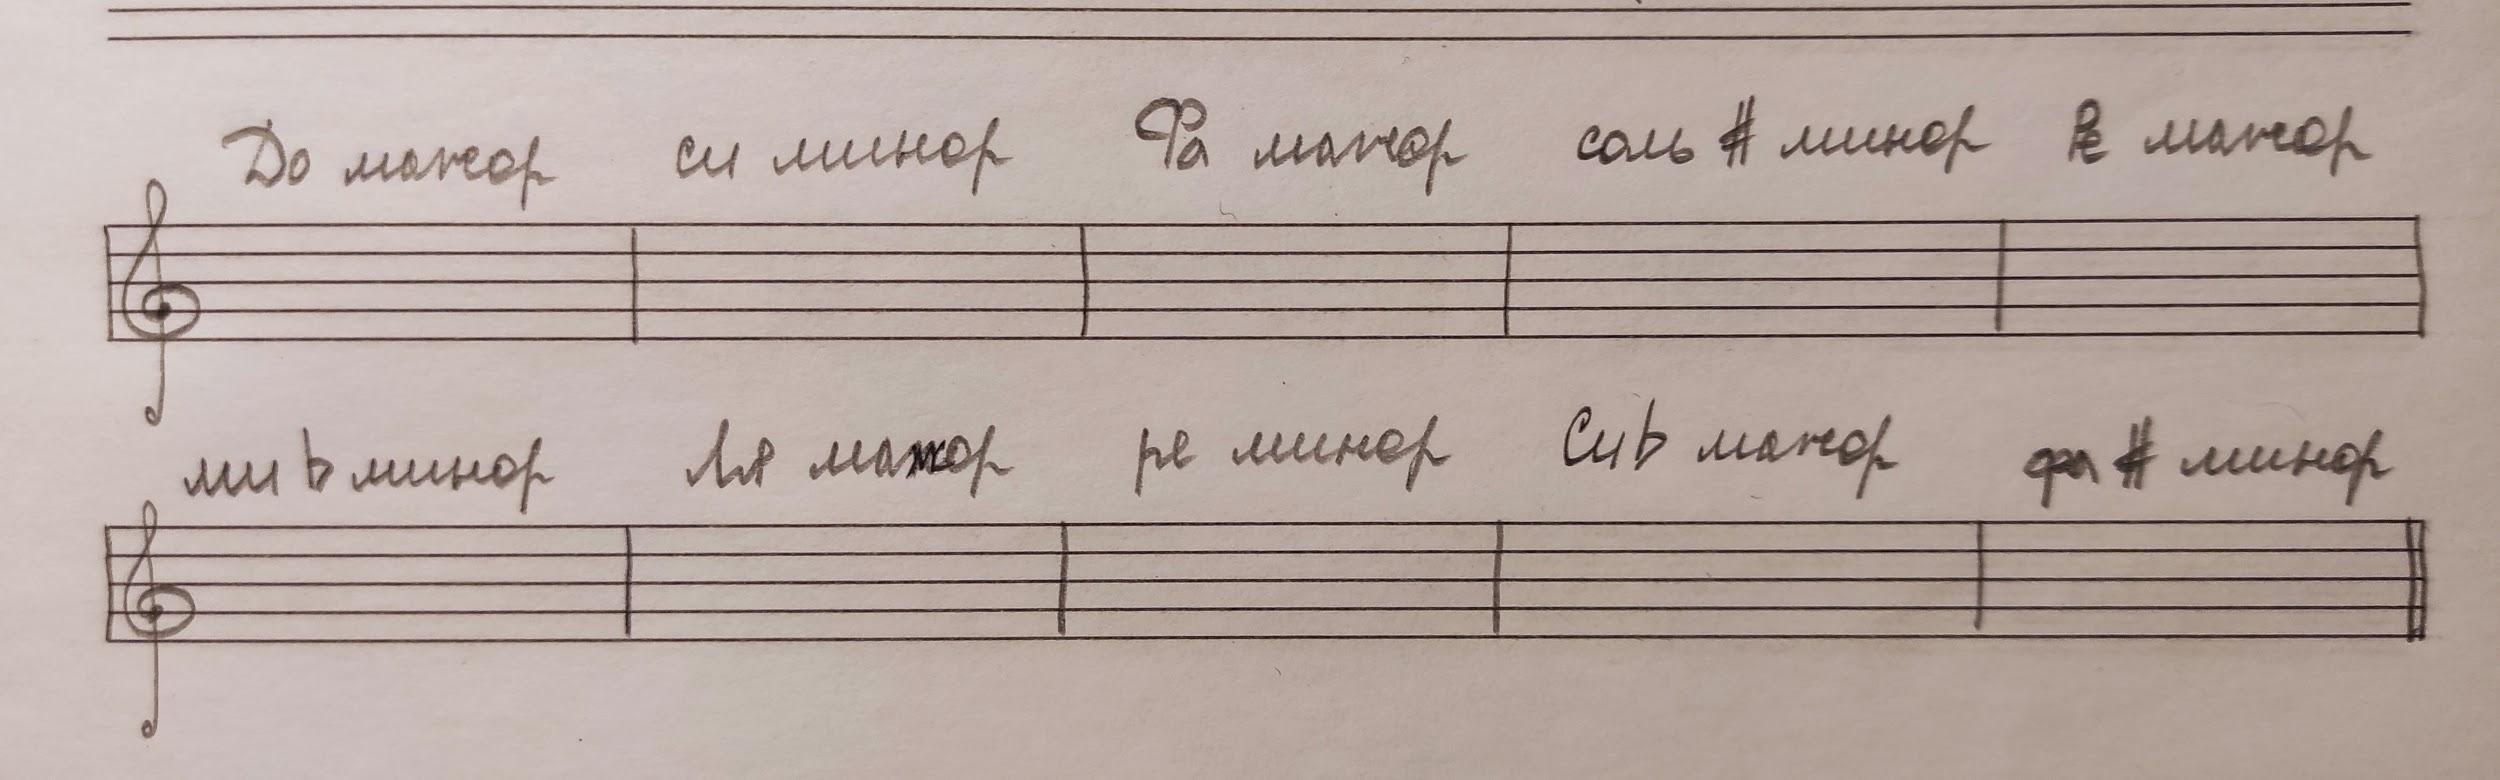 До мажор си минор Фа мажор соль # минор Ре мажор
ми b минор Ля мажор ре минор Си b мажор фа # минор